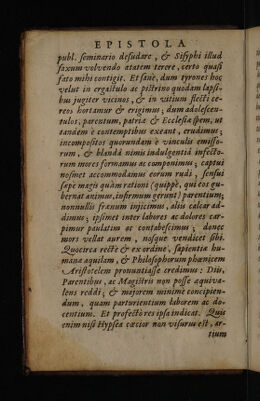 EPISTOLA
publ. seminario desudare, & Sisyphi illud
saxum volvendo ætatem terere, certo quasi
fato mihi contigit. Et sanè, dum tyrones hoc
velut in ergastulo ac pistrino quodam lapsi-
bus jugiter vicinos, & in vitium flecti ce-
reos hortamur & erigimus; dum adolescen-
tulos, parentum, patriæ & Ecclesiæ spem, ut
tandem è contemptibus exeant, erudimus;
incompositos quorundam è vinculis emisso-
rum, & blandâ nimis indulgentiâ infecto-
rum mores formamus ac componimus; captui
nosmet accommodamus eorum rudi, sensui
sæpe magis quàm rationi (quippè, qui eos gu-
bernat animus, infirmum gerunt) parentium;
nonnullis frænum injicimus, aliis calcar ad-
dimus; ipsimet inter labores ac dolores car-
pimur paulatim ac contabescimus; donec
mors vellat aurem, nosque vendicet sibi.
Quocirca rectè & ex ordine, sapientiæ hu-
manæ aquilam, & Philosophorum phœnicem
Aristotelem pronuntiasse credimus: Diis,
Parentibus, ac Magistris non posse æquiva-
lens reddi; & majorem minimè concipien-
dum, quam parturientium laborem ac do-
centium. Et profectò res ipsa indicat. Quis
enim nisi Hypsea cæcior non visurus est, ar-
tium